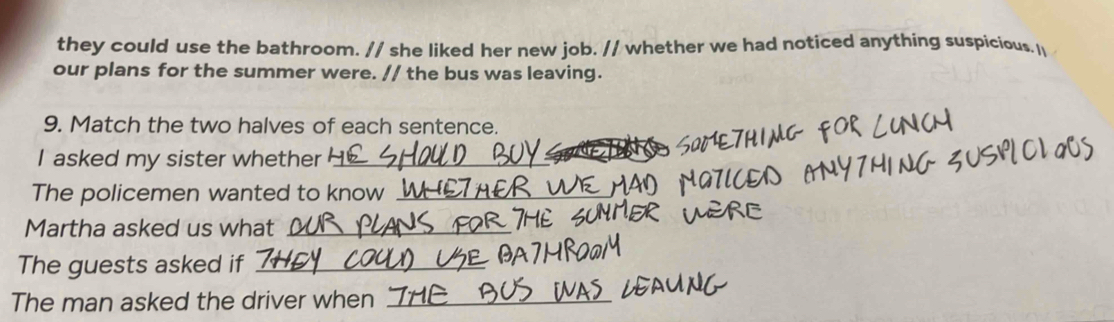 they could use the bathroom. // she liked her new job. // whether we had noticed anything suspicious. //
our plans for the summer were. // the bus was leaving.
9. Match the two halves of each sentence.
I asked my sister whether HE SHOULD BUY SOMETHING FOR LUNCH
The policemen wanted to know WHETHER WE HAD NOTICED ANYTHING SUSPICIOUS
Martha asked us what OUR PLANS FOR THE SUMMER WERE
The guests asked if THEY COULD USE BATHROOM
The man asked the driver when THE BUS WAS LEAVING